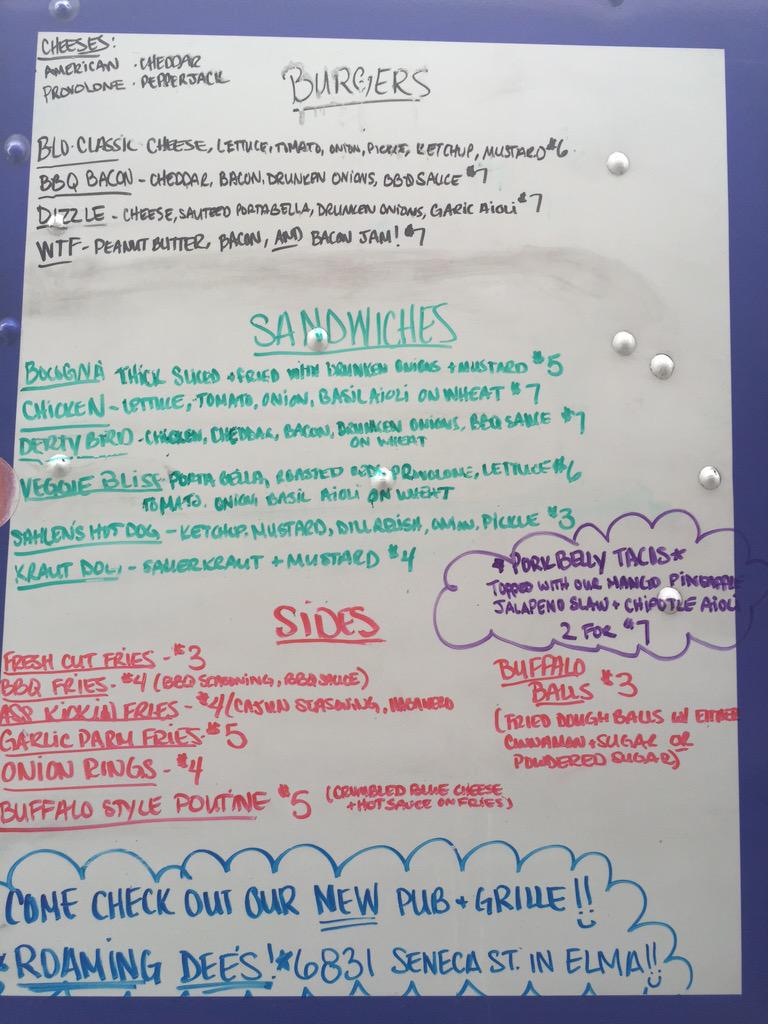 CHEESES:
AMERICAN · CHEDDAR
PROVOLONE · PEPPERJACK
BURGERS
BLD·CLASSIC CHEESE, LETTUCE, TOMATO, ONION, PICKLE, KETCHUP, MUSTARD $6
BBQ BACON - CHEDDAR, BACON, DRUNKEN ONIONS, BBQ SAUCE $7
DIZZLE - CHEESE, SAUTEED PORTABELLA, DRUNKEN ONIONS, GARIC AIOLI $7
WTF - PEANUT BUTTER, BACON, AND BACON JAM! $7
SANDWICHES
BOLOGNA THICK SLICED + FRIED WITH DRUNKEN ONIONS + MUSTARD $5
CHICKEN - LETTUCE, TOMATO, ONION, BASIL AIOLI ON WHEAT $7
DERTY BIRD - CHICKEN, CHEDDAR, BACON, DRUNKEN ONIONS, BBQ SAUCE $7
ON WHEAT
VEGGIE BLISS PORTABELLA, ROASTED PROVOLONE, LETTUCE $6
TOMATO, ONION, BASIL AIOLI ON WHEAT
SAHLEN'S HOT DOG - KETCHUP, MUSTARD, DILL RELISH, ONION, PICKLE $3
KRAUT DOG - SAUERKRAUT + MUSTARD $4
*PORK BELLY TACOS*
TOPPED WITH OUR MANGO PINEAPPLE
JALAPENO SLAW + CHIPOTLE AIOLI
2 FOR $7
SIDES
FRESH CUT FRIES - $3
BBQ FRIES - $4 (BBQ SEASONING, BBQ SAUCE)
ASS KICKIN FRIES - $4 (CAJUN SEASONING, HABANERO
GARLIC PARM FRIES - $5
ONION RINGS - $4
BUFFALO STYLE POUTINE $5 (CRUMBLED BLUE CHEESE
+ HOT SAUCE ON FRIES)
BUFFALO
BALLS $3
(FRIED DOUGH BALLS W/ EITHER
CINNAMON + SUGAR OR
POWDERED SUGAR)
COME CHECK OUT OUR NEW PUB + GRILLE!!
*ROAMING DEE'S!* 6831 SENECA ST. IN ELMA!!